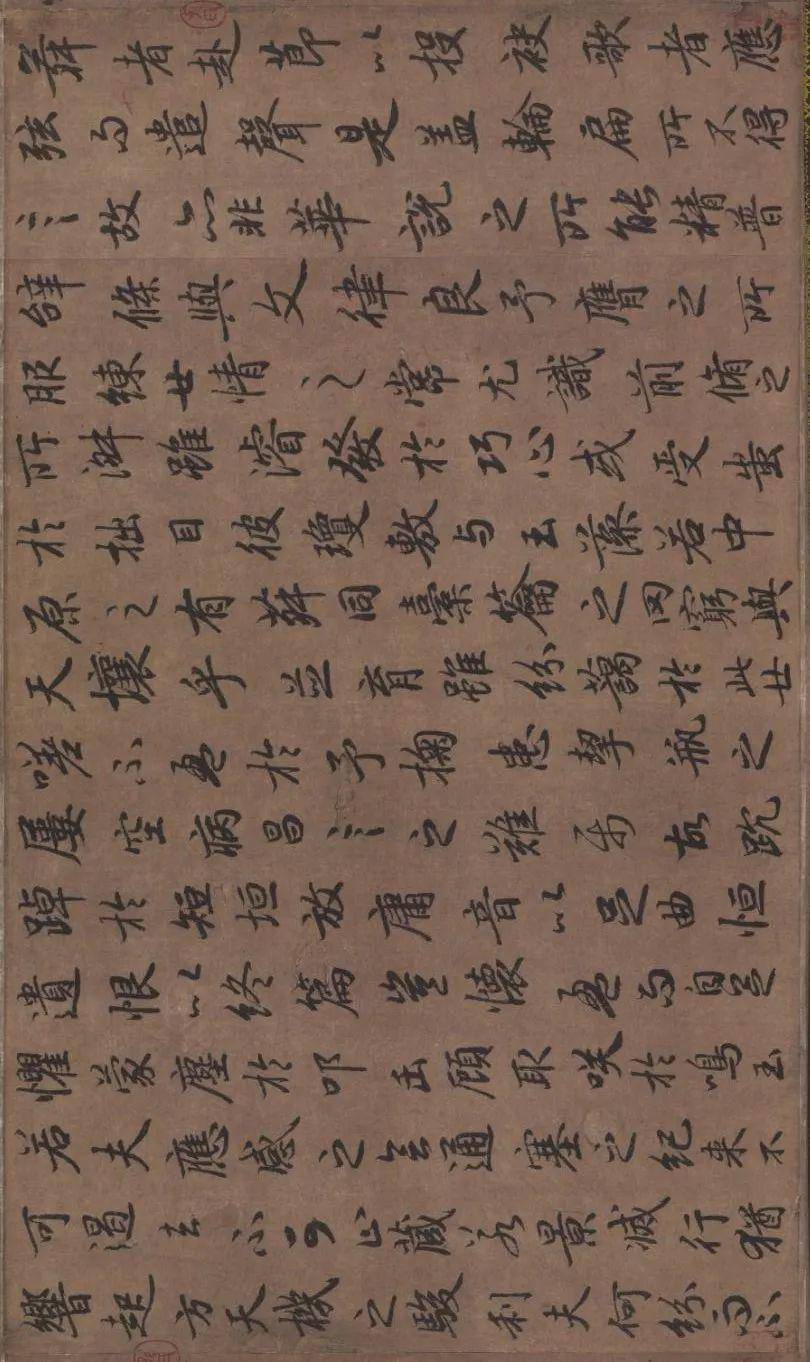 舞者赴節以投袂歌者應
弦而遣聲是蓋輪扁所不得
言故亦非華說之所能精普
辭條與文律良予膺之所
服練世情之常尤識前脩之
所淑雖濬發於巧心或受蚩
於拙目彼瓊敷與玉藻若中
原之有菽同橐籥之罔窮與
天壤乎並育雖紛藹於此世
嗟不盈於予掬患挈瓶之
屢空病昌言之難屬故踸
踔於短垣放庸音以足曲恒
遺恨以終篇豈懷盈而自足
懼蒙塵於叩缶顧取咲於鳴玉
若夫應感之會通塞之紀来不
可遏去不可止藏若景滅行猶
響起方天機之駿利夫何紛而不